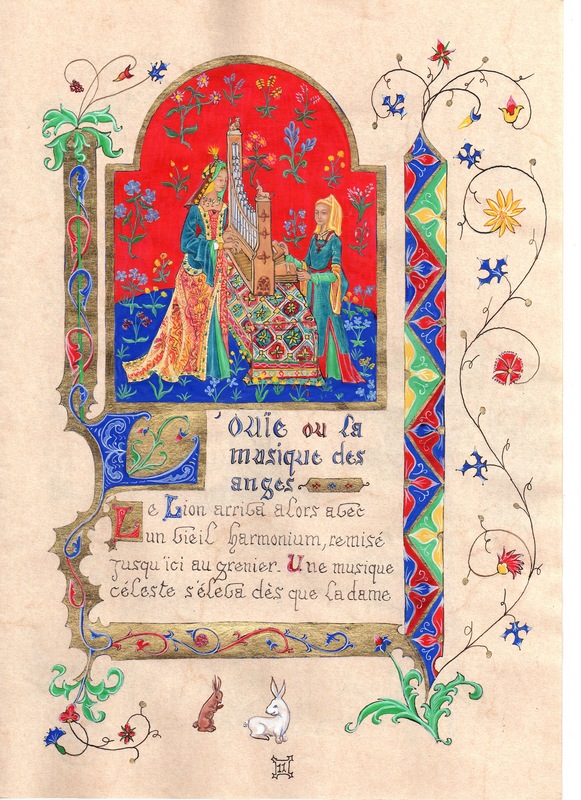 L'ouïe ou la
musique des
anges
Le Lion arriva alors avec
un vieil harmonium, remisé
jusqu'ici au grenier. Une musique
céleste s'éleva dès que la dame
11